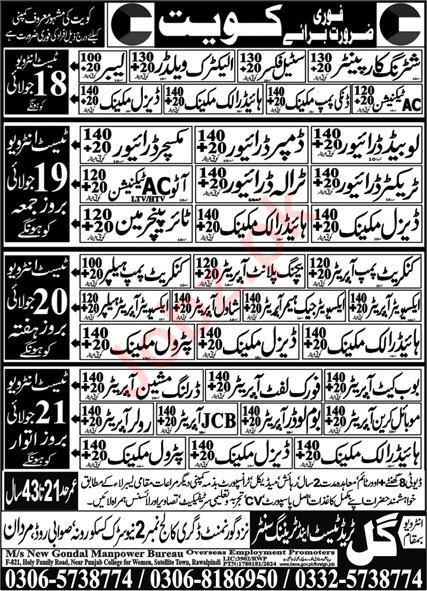 فوری
ضرورت برائے
کویت
کویت کی مشہور معروف کمپنی
کیلئے درج ذیل افراد کی فوری ضرورت ہے
شٹرنگ کارپینٹر 130+20
سٹیل فکسر 130+20
الیکٹرک ویلڈر 130+20
لیبر 100+20
AC ٹیکنیشن 120+20
ڈنکی پمپ مکینک 140+20
ہائیڈرالک مکینک 140+20
ڈیزل مکینک 140+20
ٹیسٹ انٹرویو
18
جولائی
کو ہونگے
لوبیڈ ڈرائیور 140+20
ڈمپر ڈرائیور 140+20
مکسچر ڈرائیور 140+20
ٹریکٹر ڈرائیور 140+20
ٹرالہ ڈرائیور 140+20
آٹو AC ٹیکنیشن 120+20
LTV/HTV
ڈیزل مکینک 140+20
ہائیڈرالک مکینک 140+20
ٹائر پنچر مین 120+20
ٹیسٹ انٹرویو
19
جولائی
بروز جمعہ
کو ہونگے
کنکریٹ پمپ آپریٹر 120+20
بیچنگ پلانٹ آپریٹر 120+20
کنکریٹ پمپ ہیلپر 100+20
ایکسیویٹر آپریٹر 140+20
ایکسیویٹر جیک ہیمر آپریٹر 140+20
شاول آپریٹر 140+20
ایکسیویٹر آپریٹر ہیلپر 120+20
ہائیڈرالک مکینک 140+20
ڈیزل مکینک 140+20
پٹرول مکینک 140+20
ٹیسٹ انٹرویو
20
جولائی
بروز ہفتہ
کو ہونگے
بوب کیٹ آپریٹر 140+20
فورک لفٹ آپریٹر 140+20
ڈرلنگ مشین آپریٹر 140+20
موبائل کرین آپریٹر 140+20
بوم لوڈر آپریٹر 140+20
JCB آپریٹر 140+20
رولر آپریٹر 140+20
ہائیڈرالک مکینک 140+20
ڈیزل مکینک 140+20
پٹرول مکینک 140+20
ٹیسٹ انٹرویو
21
جولائی
بروز اتوار
کو ہونگے
ڈیوٹی 8 گھنٹے + اوور ٹائم / معاہدہ مدت 2 سال / رہائش میڈیکل ٹرانسپورٹ بذمہ کمپنی دیگر مراعات مقامی لیبر لاء کے مطابق
خواہشمند حضرات اپنے مکمل کاغذات اصل پاسپورٹ CV تجربہ تعلیمی سرٹیفکیٹ تصاویر اور لائسنس ہمراہ لائیں۔
عمر حد 21 تا 43 سال
انٹرویو
بمقام
گل ٹریڈ ٹیسٹ اینڈ ٹریننگ سنٹر
نزد گورنمنٹ ڈگری کالج نمبر 2 نیو سڑک کسکورونہ صوابی روڈ مردان
M/s New Gondal Manpower Bureau Overseas Employment Promoters
F-821, Holy Family Road, Near Punjab College for Women, Satellite Town, Rawalpindi
LIC:3902/RWP
P.No: 1780181/2024
www.beoe.gov.pk/foreign.job
0306-5738774 / 0306-8186950 / 0332-5738774